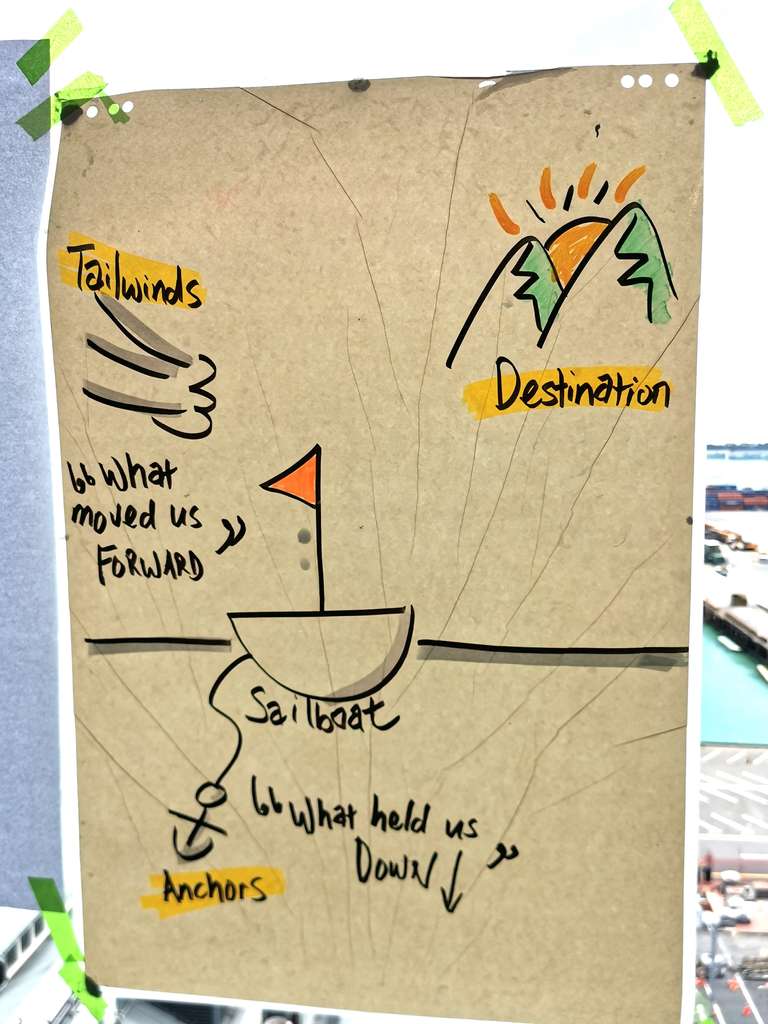 Tailwinds
Destination
"What
moved us
FORWARD"
Sailboat
"What held us
DOWN ↓"
Anchors